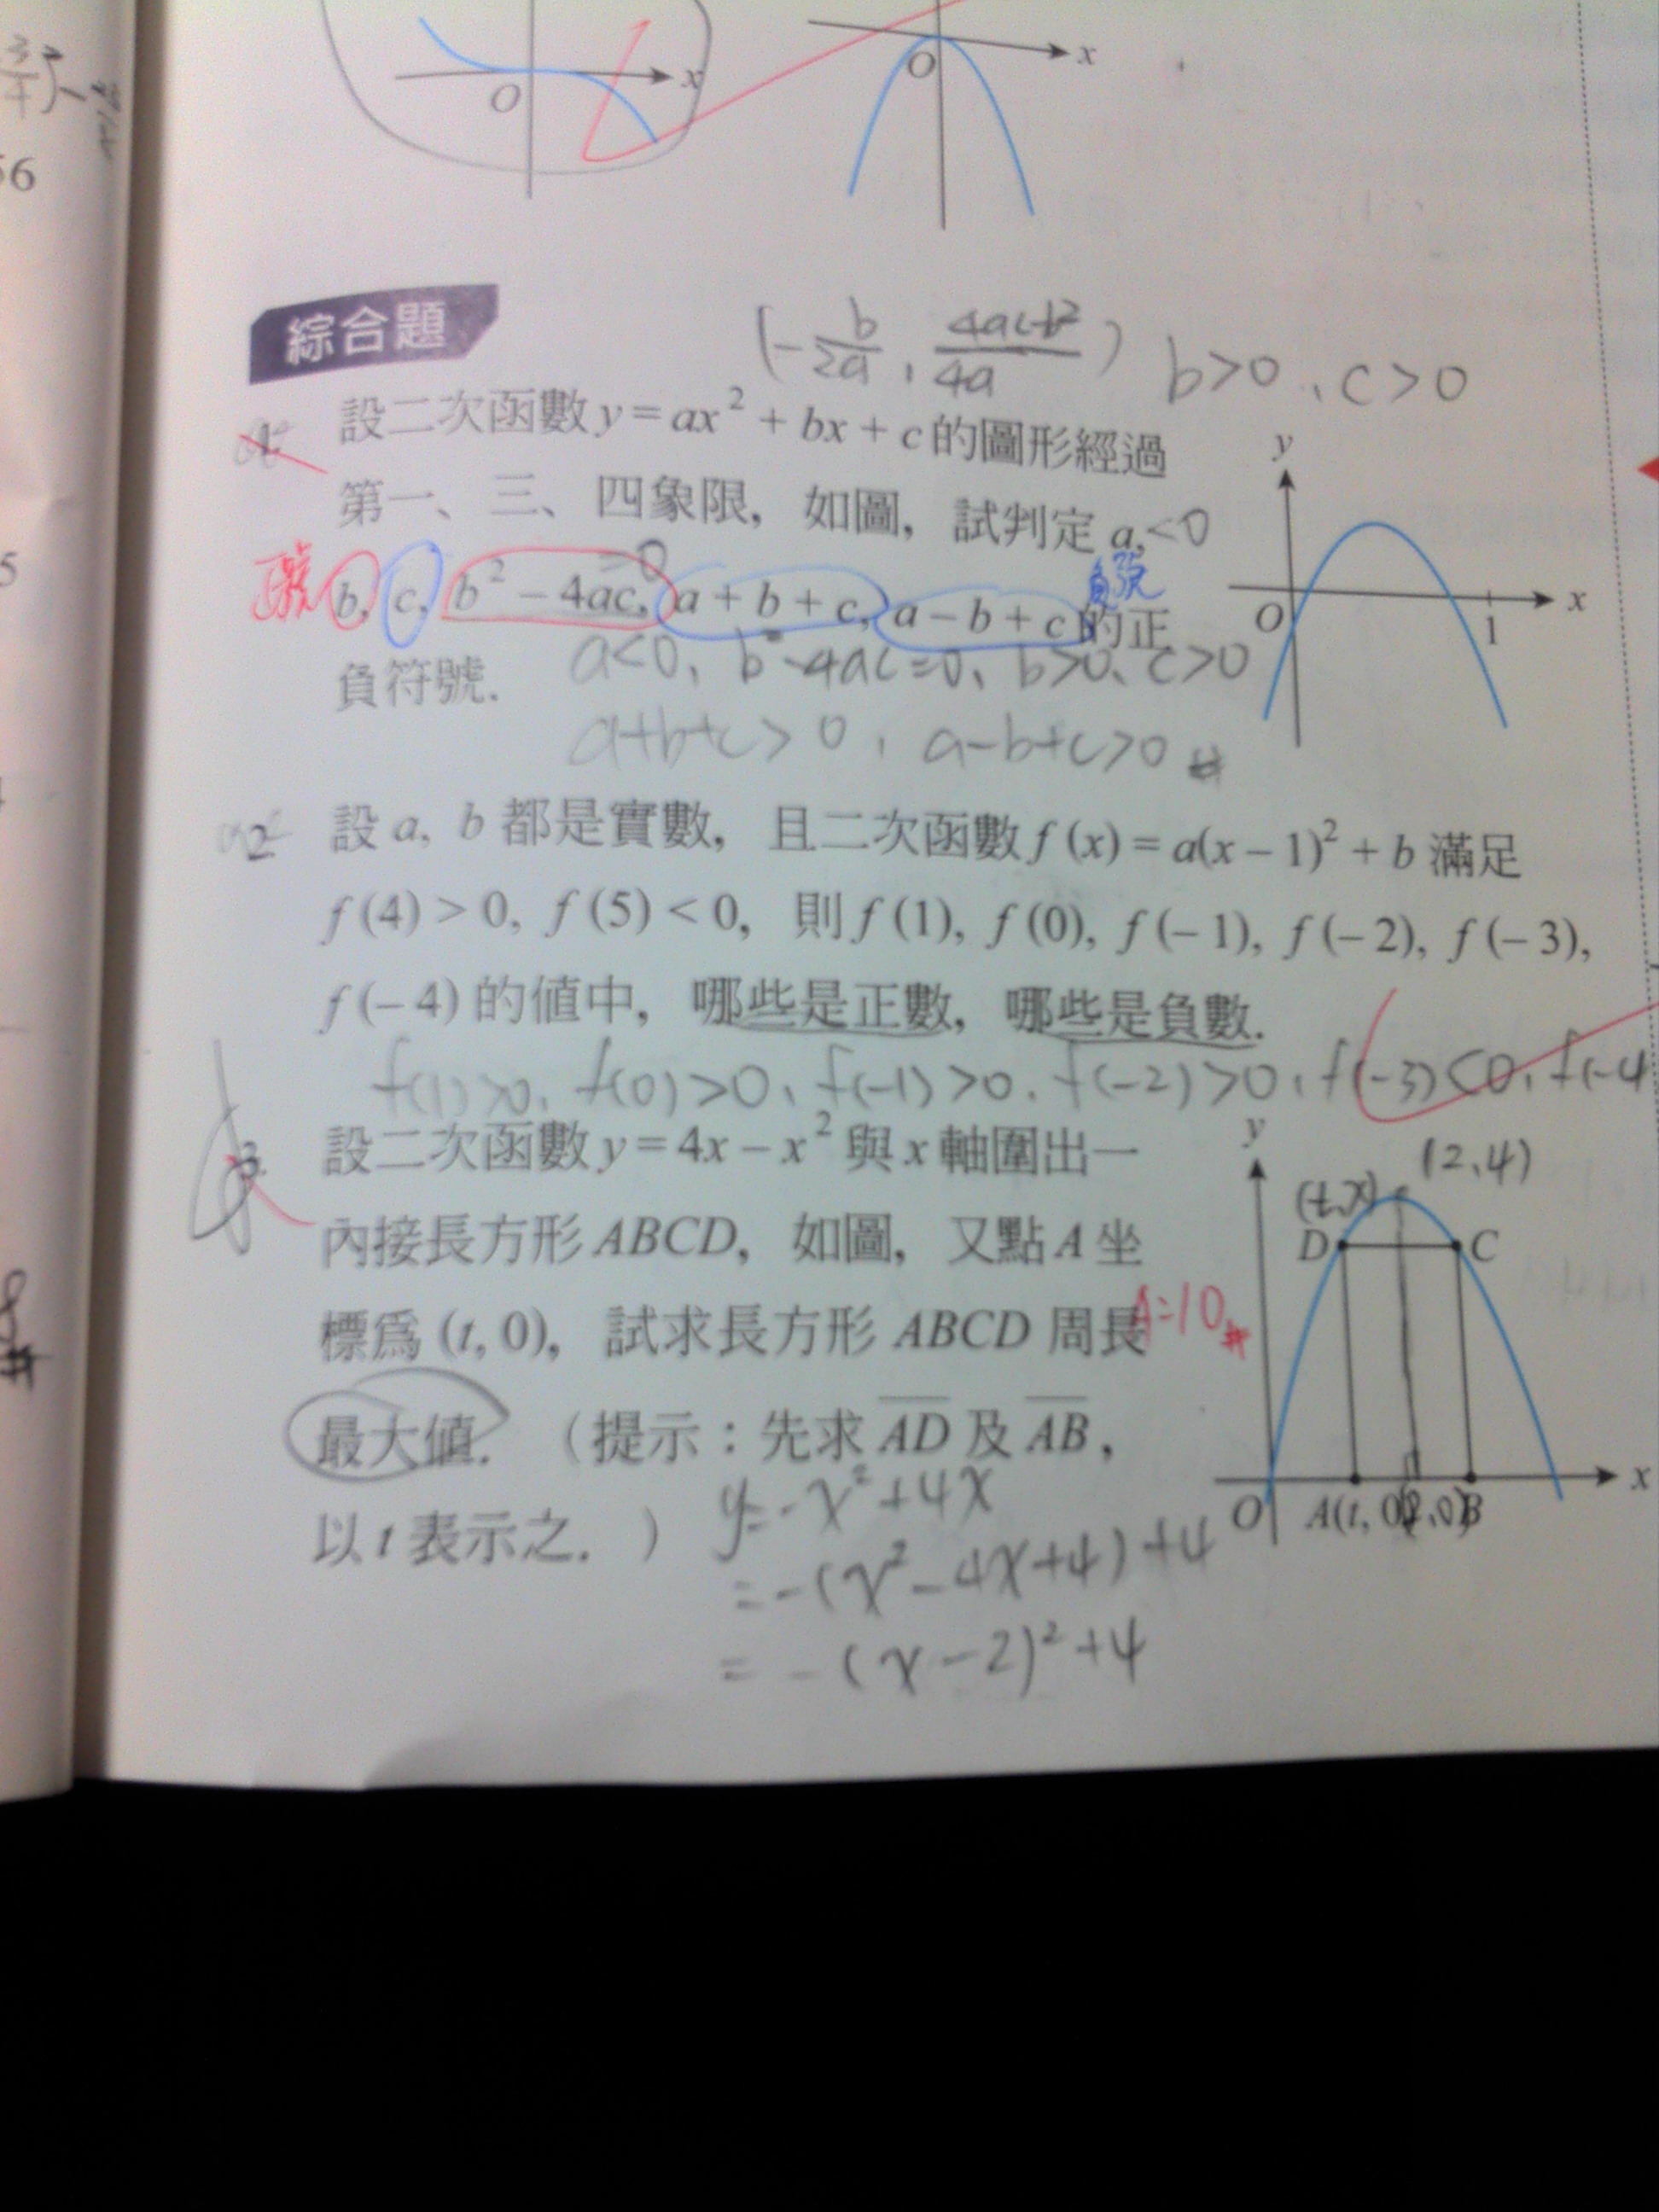 56
5
O
x
O
x
綜合題
(-b/2a, 4ac-b²/4a) b>0, c>0
1. 設二次函數 y = ax² + bx + c 的圖形經過
第一、三、四象限, 如圖, 試判定 a, <0
正號 b, c, b² – 4ac, a + b + c, a – b + c 的正 負號
負符號.
a<0, b²-4ac=0, b>0, c>0
a+b+c>0, a-b+c>0 #
y
O
1
x
2. 設 a, b 都是實數, 且二次函數 f (x) = a(x – 1)² + b 滿足
f (4) > 0, f (5) < 0, 則 f (1), f (0), f (– 1), f (– 2), f (– 3),
f (– 4) 的值中, 哪些是正數, 哪些是負數.
f(1)>0, f(0)>0, f(-1)>0, f(-2)>0, f(-3)<0, f(-4
3. 設二次函數 y = 4x – x² 與 x 軸圍出一
內接長方形 ABCD, 如圖, 又點 A 坐
標為 (t, 0), 試求長方形 ABCD 周長
A=10 #
最大值. (提示：先求 AD 及 AB,
以 t 表示之. )
y=-x²+4x
=-(x²-4x+4)+4
=-(x-2)²+4
y
(2,4)
(t,x)
D
C
O
A(t, 0)
B
x